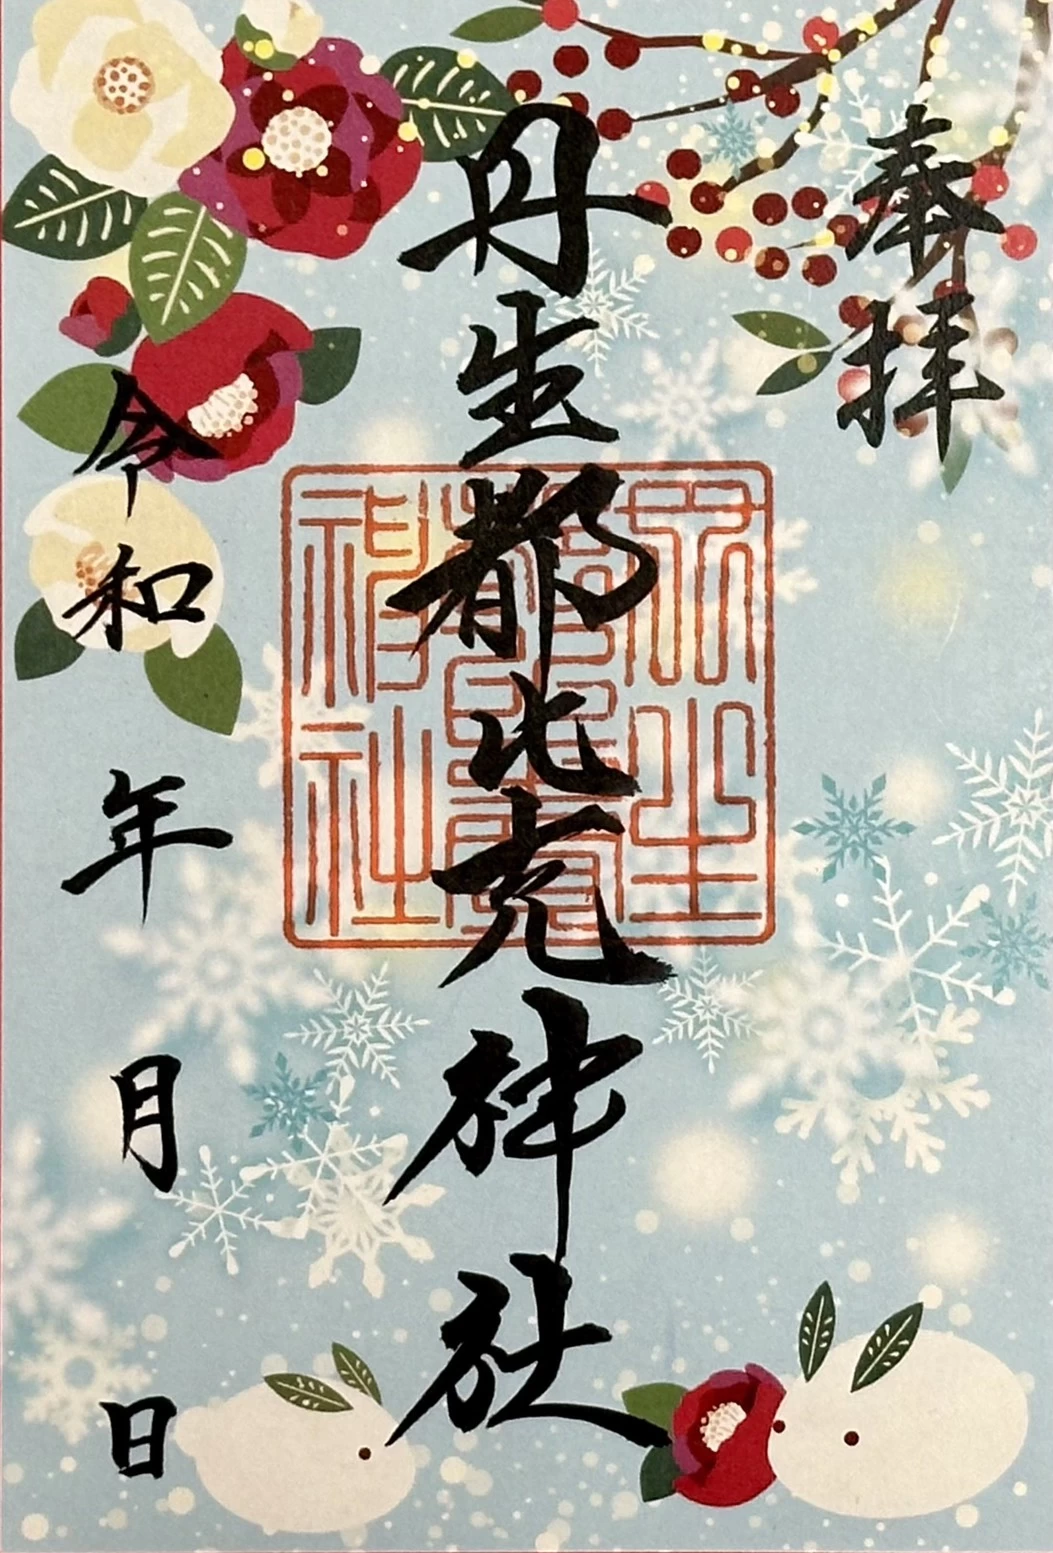 奉拝
丹生都比売神社
令和 年 月 日
丹生
都比賣
神社